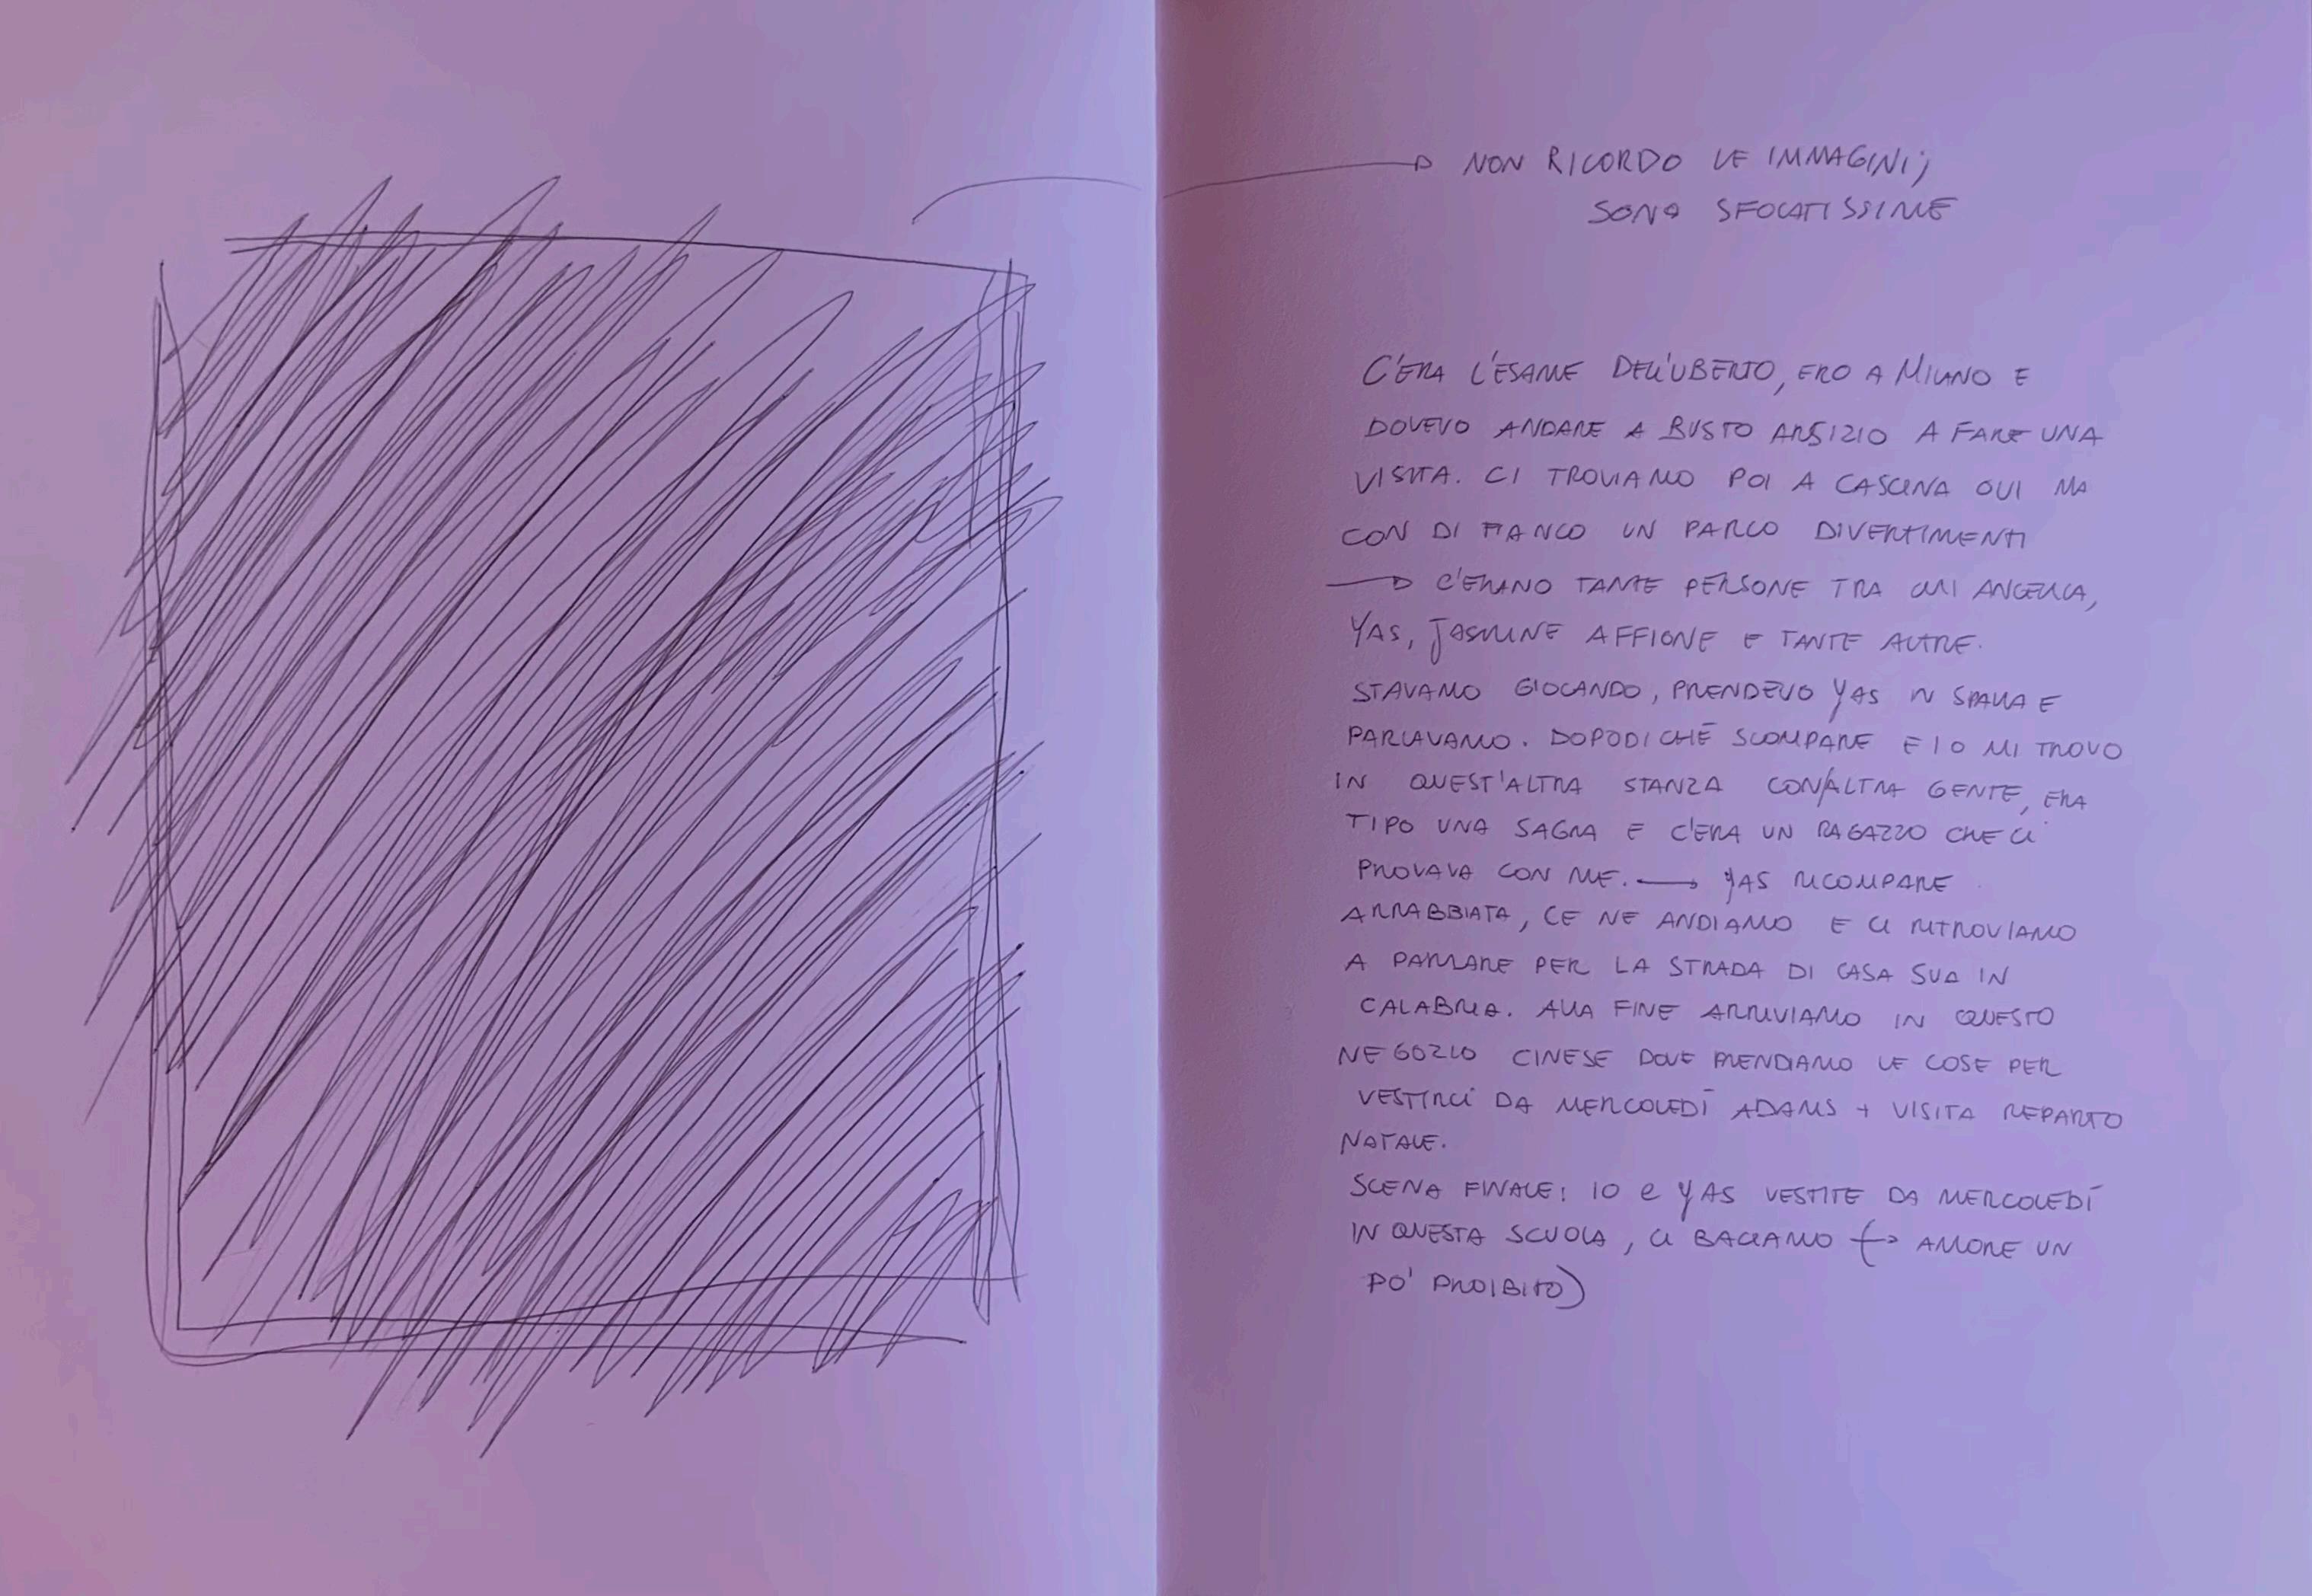 NON RICORDO LE IMMAGINI;
SONO SFOCATISSIME
C'ERA L'ESAME DELL'UBERTO, ERO A MILANO E
DOVEVO ANDARE A BUSTO ARSIZIO A FARE UNA
VISITA. CI TROVIAMO POI A CASCINA QUI MA
CON DI FIANCO UN PARCO DIVERTIMENTI
→ C'ERANO TANTE PERSONE TRA CUI ANGELICA,
YAS, JASMINE AFFIONE E TANTE ALTRE.
STAVAMO GIOCANDO, PRENDEVO YAS IN SPALLA E
PARLAVAMO. DOPODICHÈ SCOMPARE E IO MI TROVO
IN QUEST'ALTRA STANZA CON ALTRA GENTE, ERA
TIPO UNA SAGRA E C'ERA UN RAGAZZO CHE CI
PROVAVA CON ME. → YAS RICOMPARE
ARRABBIATA, CE NE ANDIAMO E CI RITROVIAMO
A PARLARE PER LA STRADA DI CASA SUA IN
CALABRIA. ALLA FINE ARRIVIAMO IN QUESTO
NEGOZIO CINESE DOVE PRENDIAMO LE COSE PER
VESTIRCI DA MERCOLEDÌ ADAMS + VISITA REPARTO
NATALE.
SCENA FINALE: IO E YAS VESTITE DA MERCOLEDÌ
IN QUESTA SCUOLA, CI BACIAMO (→ AMORE UN
PO' PROIBITO)